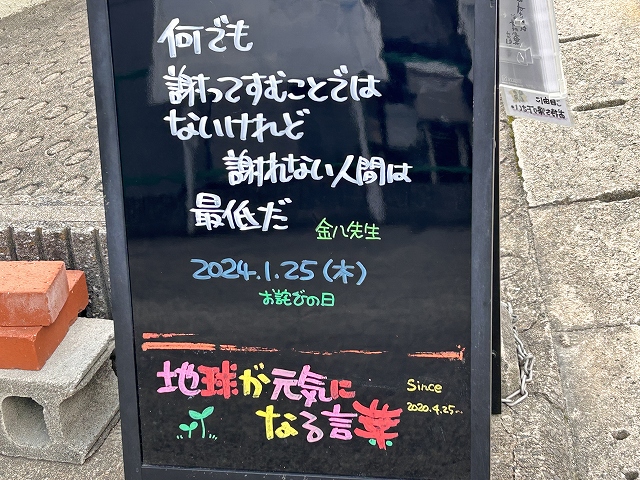 何でも
謝ってすむことでは
ないけれど
謝れない人間は
最低だ
金八先生
2024.1.25(木)
お詫びの日
地球が元気に
なる言葉
Since
2020.4.25...